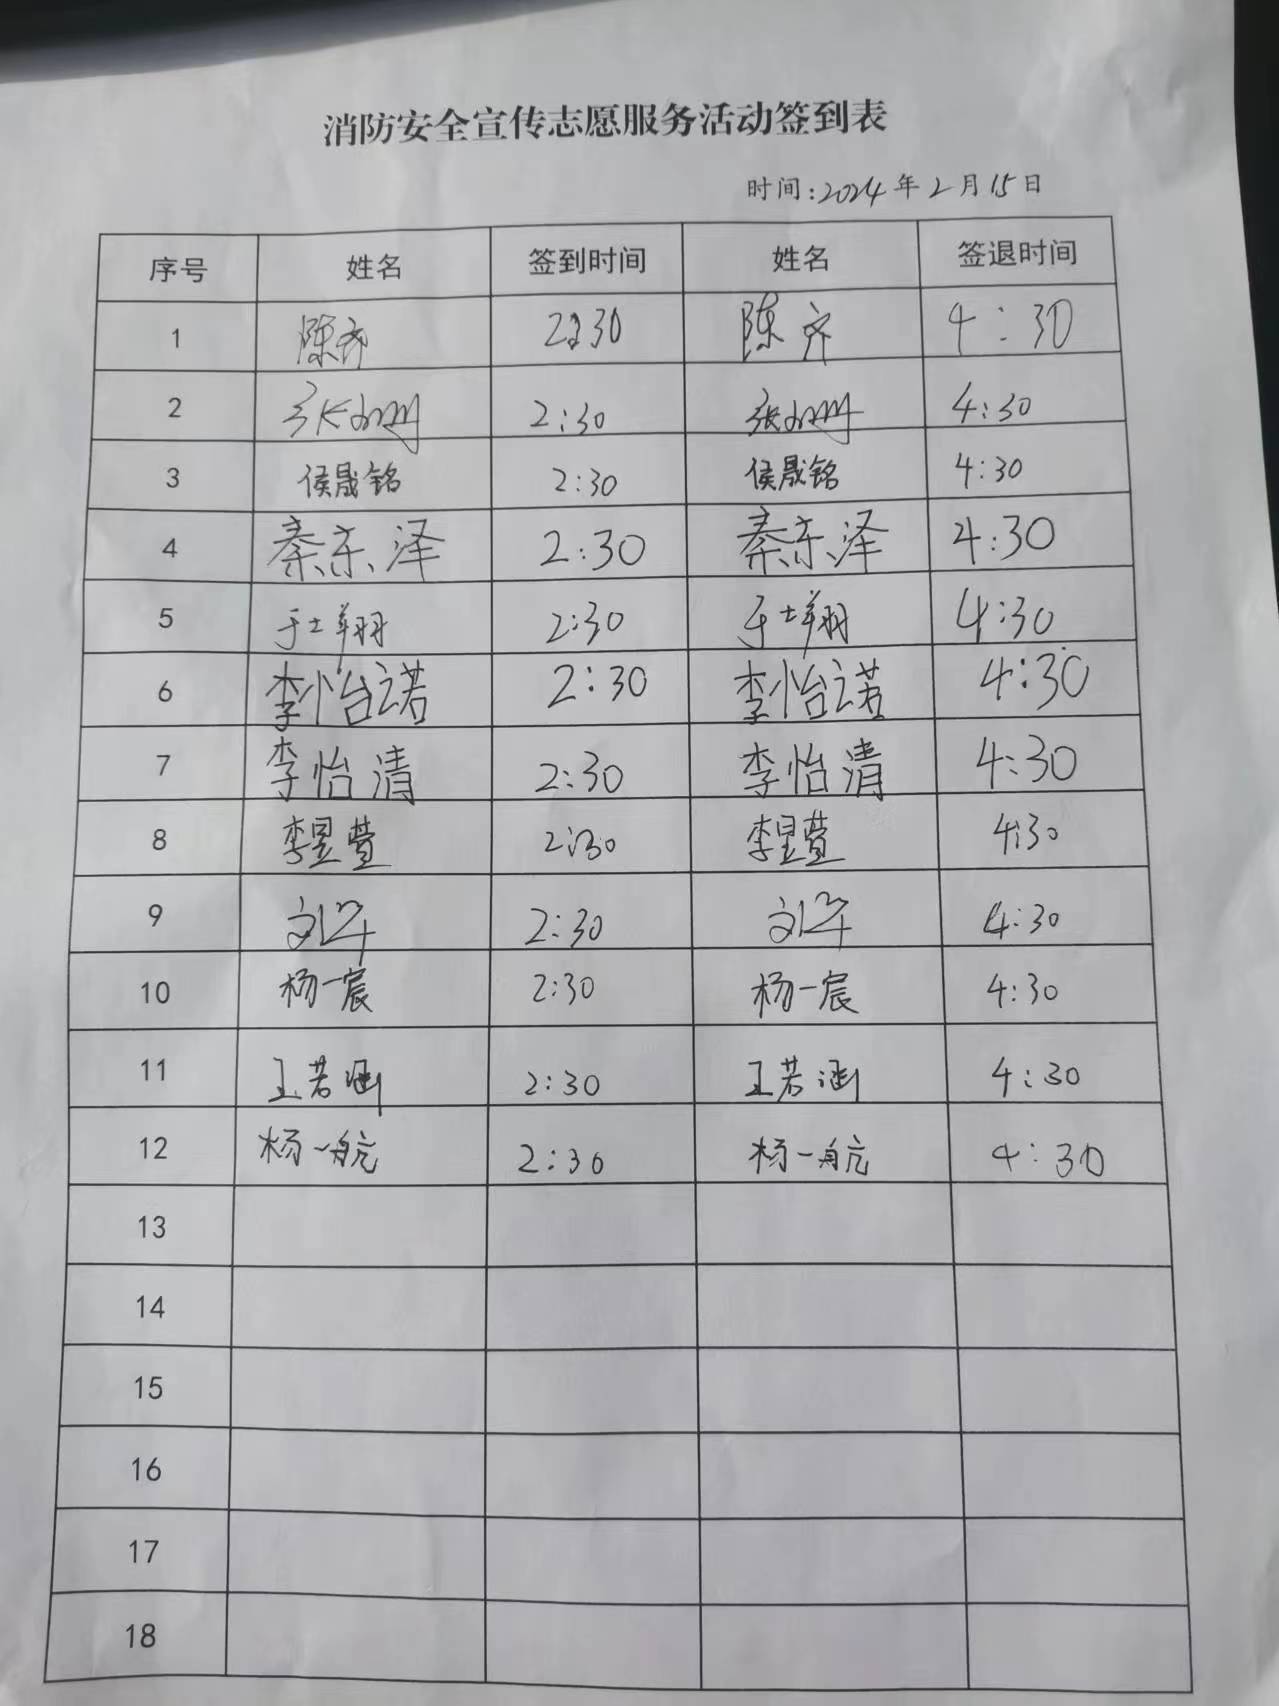 消防安全宣传志愿服务活动签到表
时间:2024年2月15日
序号 姓名 签到时间 姓名 签退时间
1 陈齐 2:30 陈齐 4:30
2 张 2:30 张 4:30
3 侯晟铭 2:30 侯晟铭 4:30
4 秦东泽 2:30 秦东泽 4:30
5 于士翔 2:30 于士翔 4:30
6 李怡诺 2:30 李怡诺 4:30
7 李怡清 2:30 李怡清 4:30
8 李昱萱 2:30 李昱萱 4:30
9 刘 2:30 刘 4:30
10 杨一宸 2:30 杨一宸 4:30
11 王若涵 2:30 王若涵 4:30
12 杨一航 2:30 杨一航 4:30
13
14
15
16
17
18